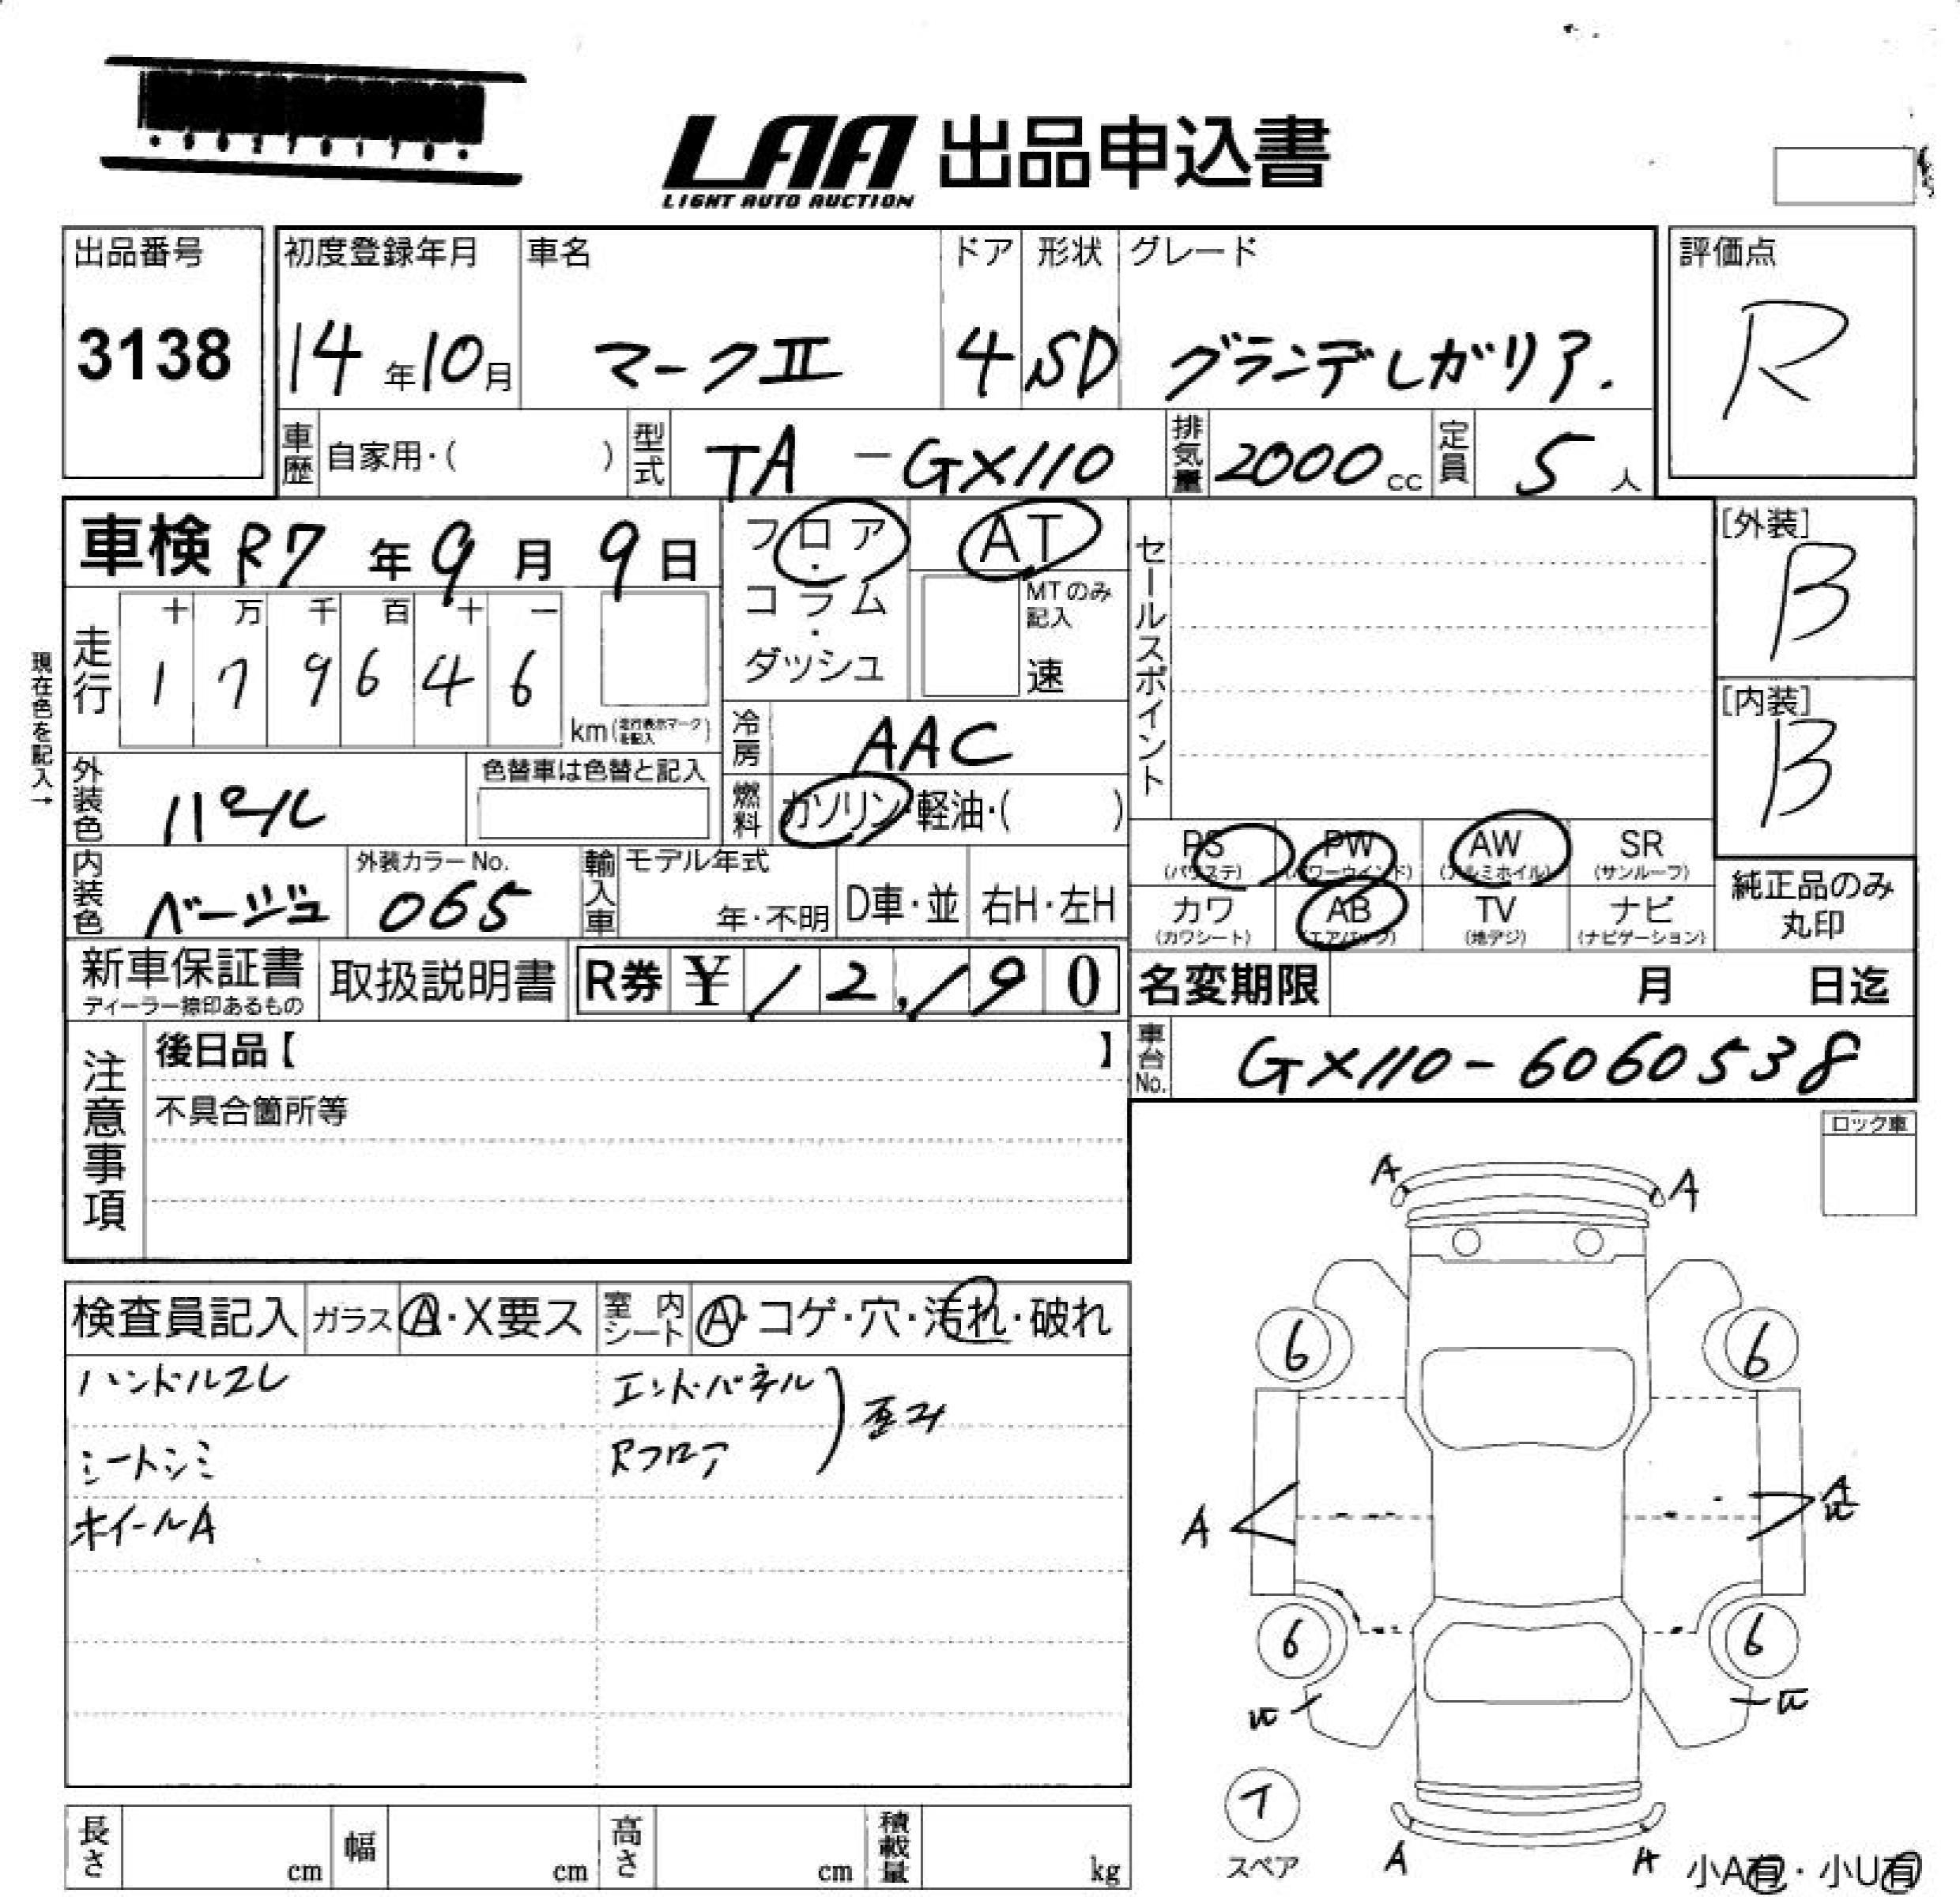 LAA 出品申込書
LIGHT AUTO AUCTION
出品番号
3138
初度登録年月
14年10月
車名
マークⅡ
ドア
4
形状
SD
グレード
グランデレガリア.
評価点
R
車歴 自家用・( )
型式 TA-GX110
排気量 2000cc
定員 5人
車検 R7年9月9日
フロア・コラム・ダッシュ
AT
MTのみ記入
速
セールスポイント
[外装]
B
[内装]
B
現在色を記入→
走行
十 万 千 百 十 一
1 7 9 6 4 6
km(走行表示マークを記入)
冷房 AAC
燃料 ガソリン・軽油・( )
外装色 パール
色替車は色替と記入
内装色 ベージュ
外装カラーNo.
065
輸入車
モデル年式
年・不明
D車・並
右H・左H
PS
(パワステ)
PW
(パワーウインド)
AW
(アルミホイル)
SR
(サンルーフ)
カワ
(カワシート)
AB
(エアバッグ)
TV
(地デジ)
ナビ
(ナビゲーション)
純正品のみ
丸印
新車保証書
ディーラー捺印あるもの
取扱説明書
R券 ¥12,190
名変期限 月 日迄
車台No. GX110-6060538
注意事項
後日品【 】
不具合箇所等
ロック車
検査員記入
ガラス A・X要ス
室内シート A・コゲ・穴・汚れ・破れ
ハンドルスレ
シートシミ
ホイールA
エンドパネル
Rフロア
歪み
A
A
6
6
A
A
6
6
スペア
A
A
小A有・小U有
長さ cm
幅 cm
高さ cm
積載量 kg